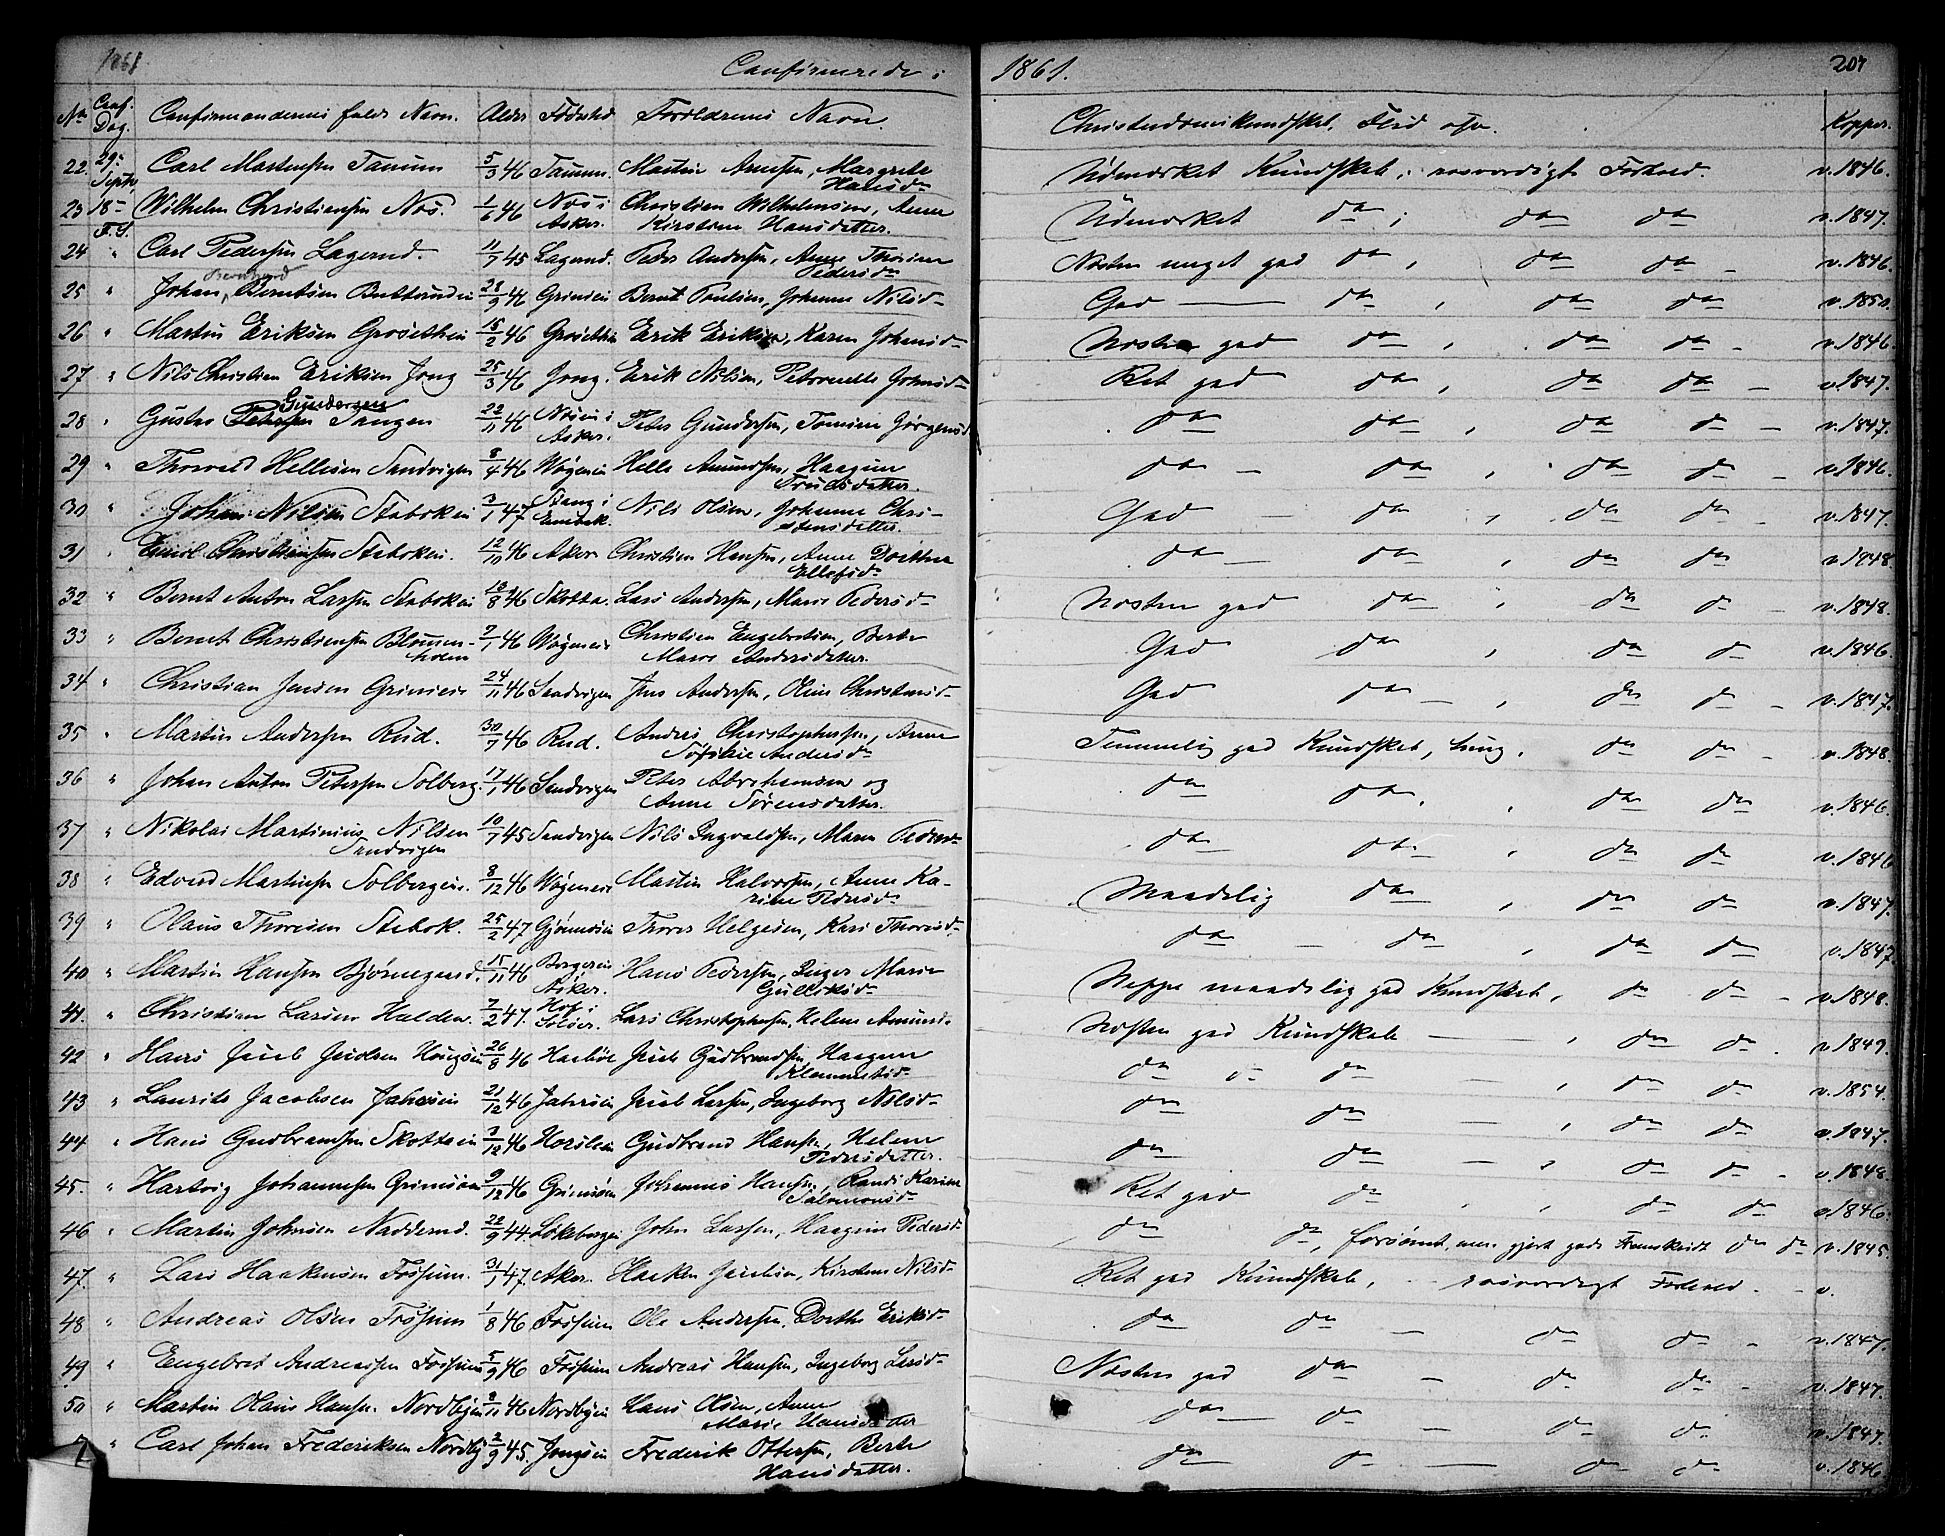 1861 Confirmerede i 1861. 207
No Conf. Dag. Confirmandernes fulde Navn. Alder Fødested Forældrenes Navn. Christendomskundskab, Flid osv. Kopper.
22. 29de Septbr. Carl Martinsen Tanum 5/3 46 Tanum. Martin Arnesen, Margrete Hansd. Udmærket Kundskab, rosværdigt Forhold. v. 1846.
23 18de Wilhelm Christiansen Næs. 1/6 46 Næs i Asker. Christian Wilhelmsen, Anne Kirstine Hansdatter. Udmærket do ; do do v. 1847.
24 " Carl Pedersen Lagerud. 11/7 45 Lagerud. Peder Andersen, Anne Pedersd. Næsten meget god do , do do v. 1846.
25 " Johan Bernhard Berntsen 28/9 46 Grinien Bernt Paulsen, Johanne Nilsd. God do , do do v. 1850.
26 " Martin Eriksen Grosethien 15/2 46 Grosethien Erik Eriksen, Karen Johansd. Næsten god do , do do v. 1846.
27 " Nils Christian Eriksen Jong 25/3 46 Jong. Erik Nilsen, Petronelle Johnsd. Ret god do , do do v. 1847.
28 " Gustav Petersen Gundersen Tangen 22/11 46 Næsen i Asker. Peter Gundersen, Tomine Jørgensd. do do , do do v. 1847.
29 " Thorvald Hellesen Sandvigen 8/4 46 Wøyenen Helle Amundsen, Haagine Truelsdatter. do do , do do v. 1846.
30 " Johan Nilsen Stabeken 3/1 47 Stang i Nils Olsen, Johanne Christensdatter. God do , do do v. 1847.
31 " Emil Christiansen Stabeken. 12/10 46 Aker Christian Hansen, Anne Dorthea Ellefsd. do do , do do v. 1848.
32 " Bernt Anton Larsen Stabeken 13/8 46 Skotta. Lars Andersen, Marie Pedersd. Næsten god do , do do v. 1848.
33 " Bernt Christiansen Blommenholm 2/1 46 Wøyenen Christian Engebretsen, Berte Marie Andersdatter. God do , do do v. 1846.
34 " Christian Jensen Grinien 24/11 46 Sandvigen Jens Andersen, Oline Christensd. God do , do do v. 1847.
35 " Martin Andersen Rud. 30/7 46 Rud. Anders Christophersen, Anne Sophie Andersd. Temmelig god Kundskab, do do v. 1848.
36 " Johan Anton Petersen Solberg. 17/1 46 Sandvigen Peter Abrahamsen og Anne Sørensdatter. do do , do do v. 1846.
37 " Nikolai Martinius Nilsen Sandvigen 10/7 45 Sandvigen Nils Ingvaldsen, Maren Pedersd. do do , do do v. 1846
38 " Edvard Martinsen Solbergen. 8/12 46 Wøyenen Martin Halvorsen, Anne Karine Pedersd. Maadelig do , do do v. 1847.
39 " Olaus Thoresen Stabek. 25/2 47 Gjønnesen Thores Helgesen, Kari Thoresd. do do , do do v. 1847.
40 " Martin Hansen Bjørnegaard. 15/11 46 Borgeren i Asker. Hans Pedersen, Inger Marie Gulliksd. Neppe maadelig god Kundskab, do do v. 1848.
41. " Christian Larsen Halden. 7/2 47. Hof i Soløer. Lars Christophersen, Helene Amundsd. Næsten god Kundskab , do do v. 1849.
42 " Hans Juul Juulsen 26/8 46 Juul Gudbrandsen, Haagine Klemmetsd. do do , do do v. 1854.
43 " Laurits Jacobsen 21/12 46 Larsen, Ingeborg Nilsd. do do , do do v. 1847.
44 " Hans Gudbrandsen Skottaen 3/12 46 Gudbrand Hansen, Helene Pedersdatter. do do , do do v. 1848.
45. " Hartvig Johannesen Grinisen 9/12 46 Grinisen Johannes Hansen, Randi Karine Salomonsd. Ret god do , do do v. 1846.
46 " Martin Johnsen Nadderud. 22/9 44. Løkebergen John Larsen, Haagine Pedersd. do do, forsømt, men gjort gode Fremskridt do do v. 1845.
47. " Lars Haakensen Fossum. 31/1 47. Aker. Haaken Jacobsen, Kirstine Nilsd. Ret god Kundskab, rosværdigt Forhold v.
48 " Andreas Olsen Fossum 1/8 46 Fossum Ole Andersen, Dorthe Eriksd. do do do do v. 1847.
49 " Engebret Andreassen Fossum 5/9 46 Fossum Andreas Hansen, Ingeborg Larsd. Næsten god do do do v. 1847.
50 " Martin Olaus Hansen Nordbyen 8/11 46 Nordbyen Hans Olsen, Anne Marie Hansdatter do do do do v. 1847.
" Carl Johan Frederiksen Nordby 2/9 45. Jongsen Frederik Ottersen, Berte Hansdatter. do do do do v. 1846